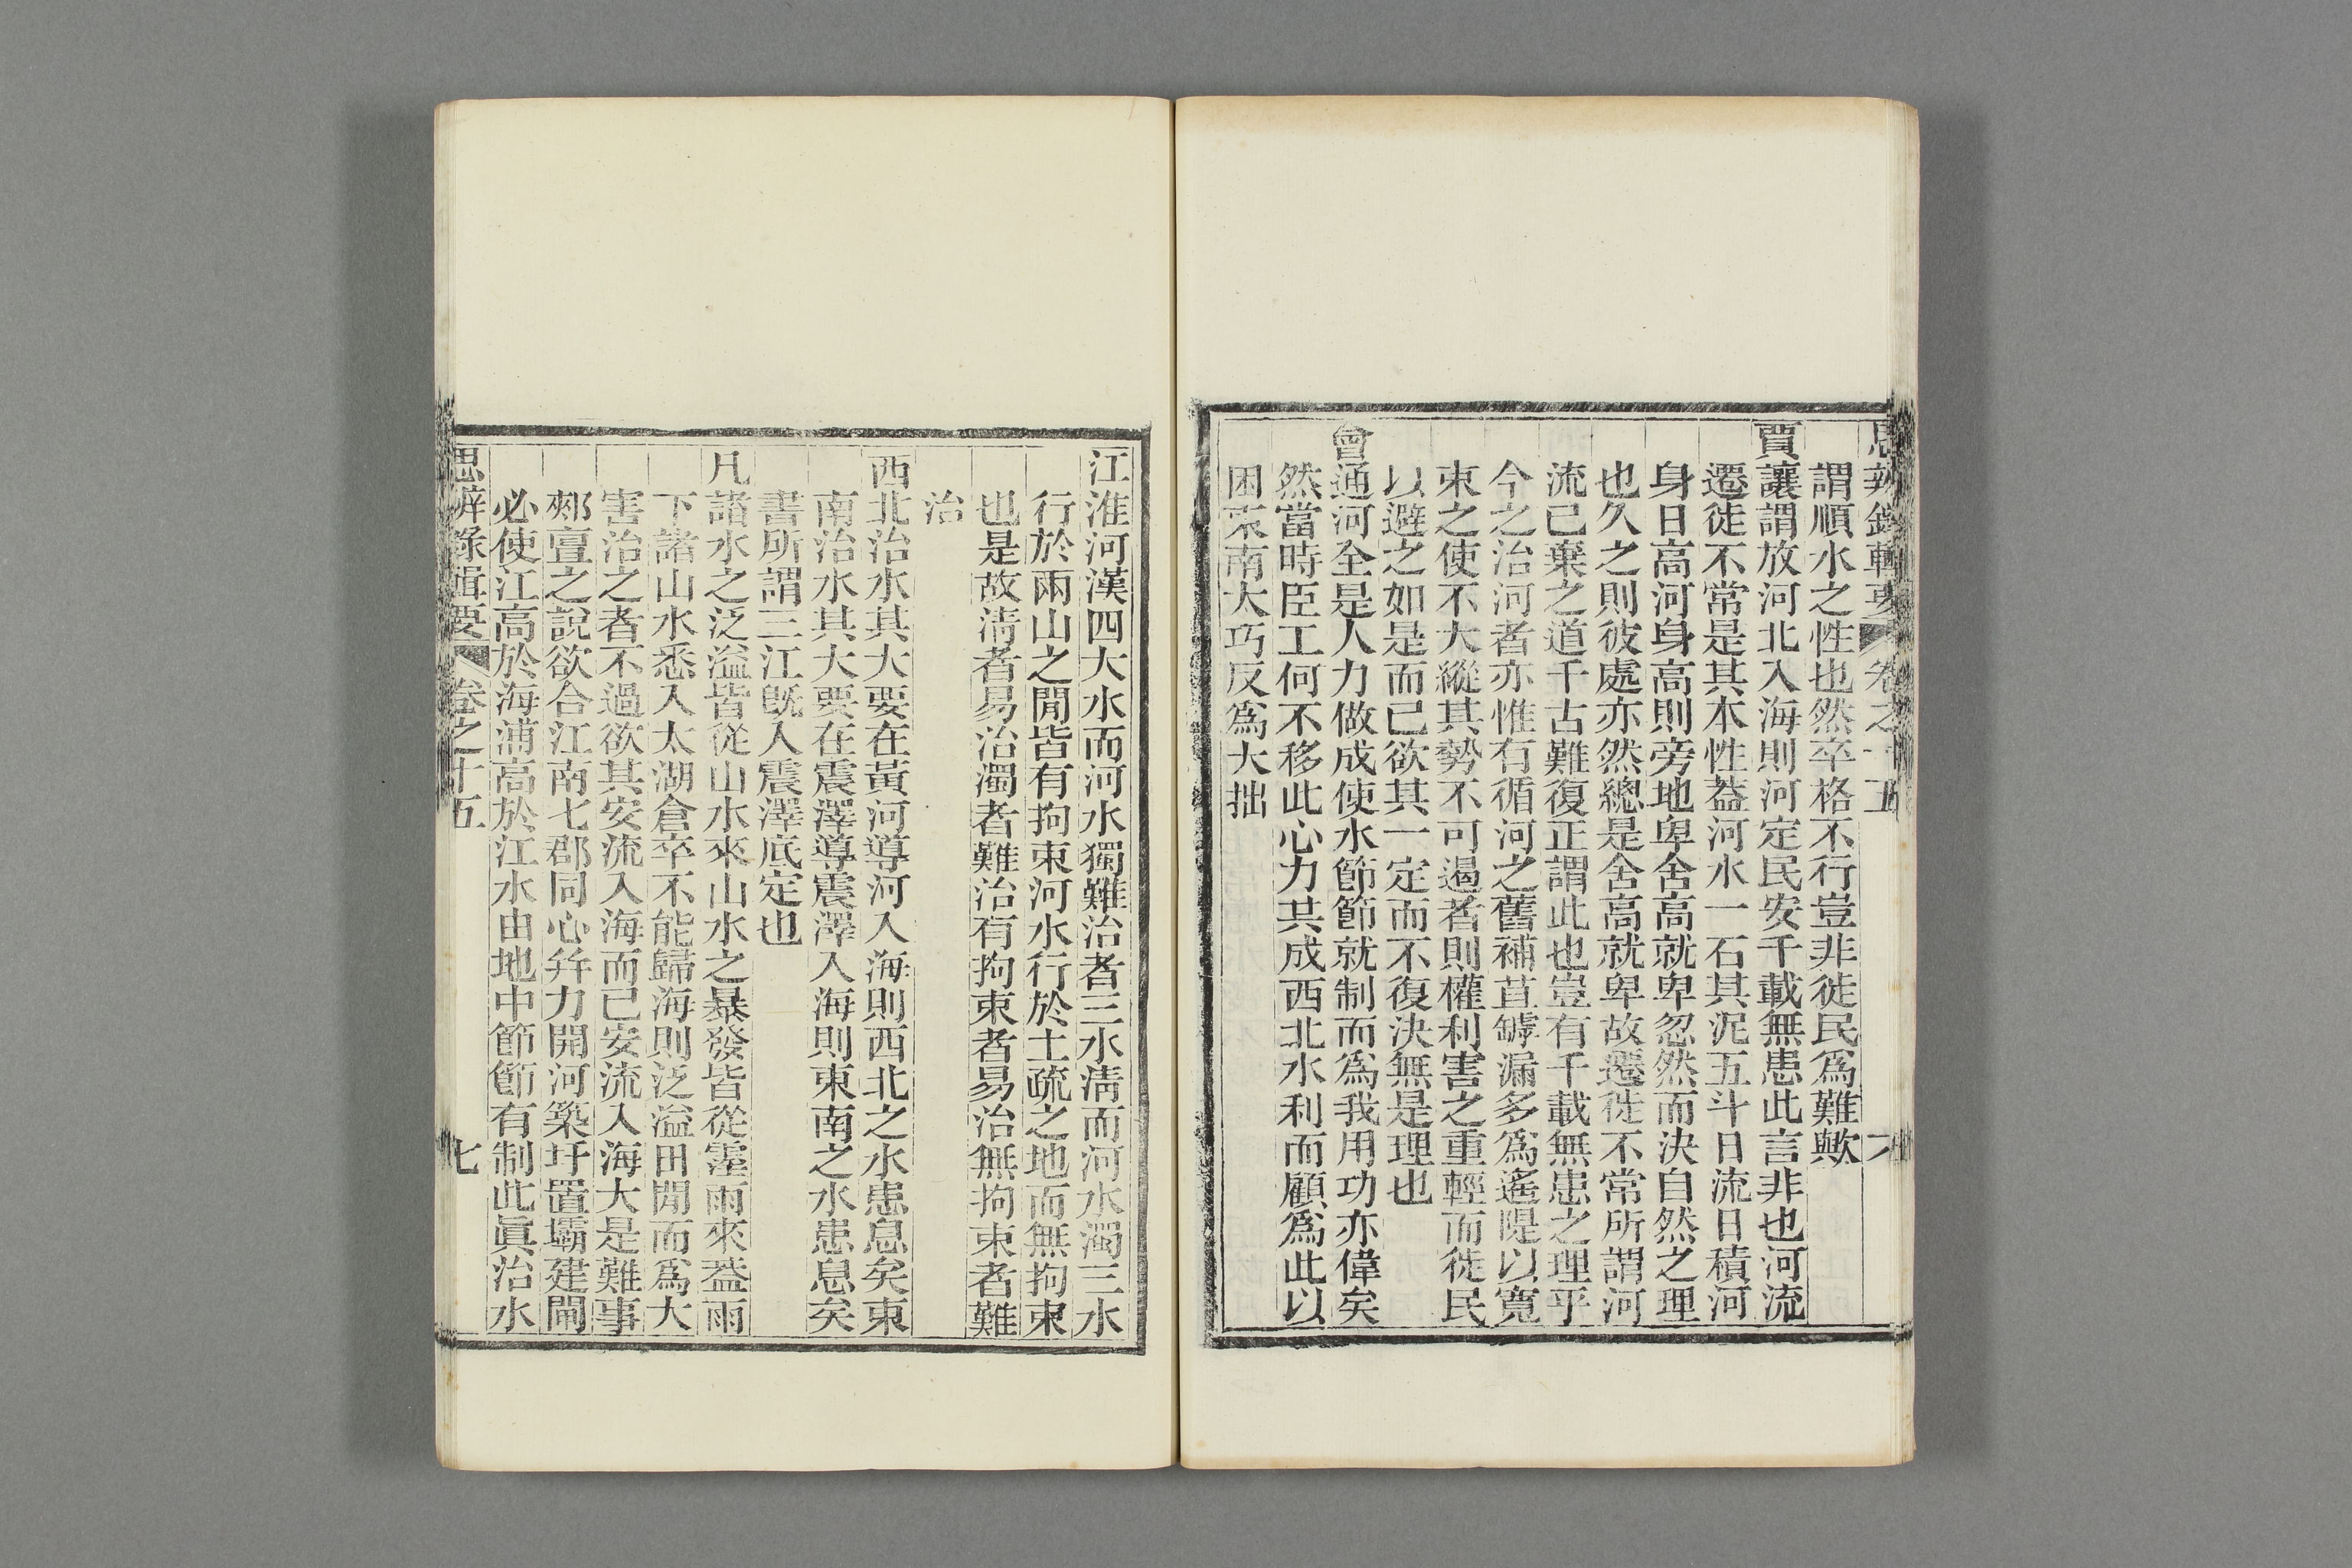 思辨錄輯要 卷之十五
謂順水之性也然卒格不行豈非徙民爲難歟
賈讓謂放河北入海則河定民安千載無患此言非也河流
遷徙不常是其本性葢河水一石其泥五斗日流日積河
身日高河身高則旁地卑舍高就卑忽然而決自然之理
也久之則彼處亦然總是舍高就卑故遷徙不常所謂河
流已棄之道千古難復正謂此也豈有千載無患之理乎
今之治河者亦惟有循河之舊補苴罅漏多爲遙隄以寬
束之使不大縱其勢不可遏者則權利害之重輕而徙民
以避之如是而已欲其一定而不復決無是理也
會通河全是人力做成使水節節就制而爲我用功亦偉矣
然當時臣工何不移此心力共成西北水利而顧爲此以
困東南大巧反爲大拙
江淮河漢四大水而河水獨難治者三水淸而河水濁三水
行於兩山之閒皆有拘束河水行於土疏之地而無拘束
也是故淸者易治濁者難治有拘束者易治無拘束者難
治
西北治水其大要在黃河導河入海則西北之水患息矣東
南治水其大要在震澤導震澤入海則東南之水患息矣
書所謂三江旣入震澤底定也
凡諸水之泛溢皆從山水來山水之暴發皆從霪雨來葢雨
下諸山水悉入太湖倉卒不能歸海則泛溢田閒而爲大
害治之者不過欲其安流入海而已安流入海大是難事
郟亶之說欲合江南七郡同心幷力開河築圩置壩建閘
必使江高於海浦高於江水由地中節節有制此眞治水
思辨錄輯要 卷之十五 七